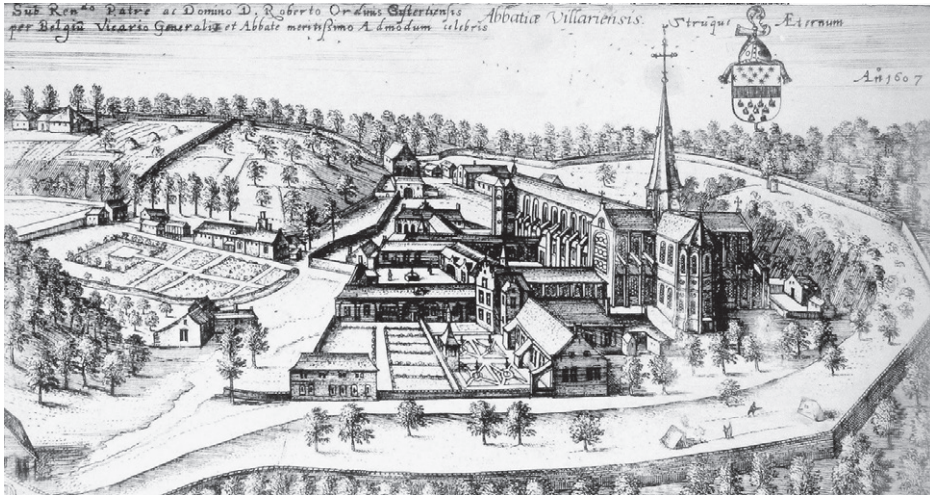 Sub Ren.do Patre ac Domino D. Roberto Ordinis Cystertiensis
per Belgiū Vicario Generali et Abbate meritissimo Admodum celebris
Abbatiæ Villariensis.
Strūque Æternum
An° 1607